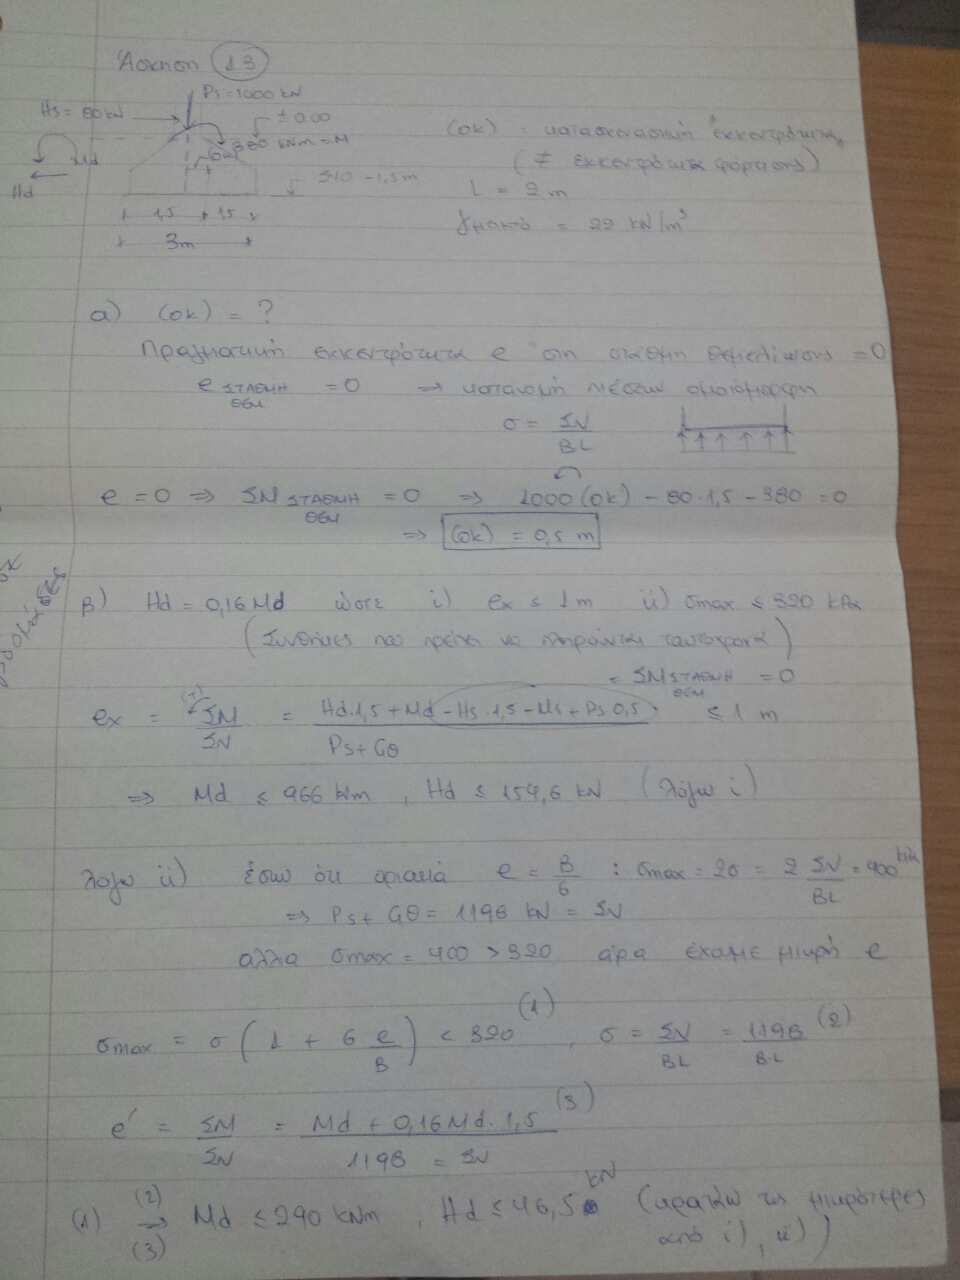 Άσκηση 1.3
Ps = 1000 kN
Hs = 80 kN
± 0.00
380 kNm = M
(οκ)
Md
Hd
-1,5m
1,5 1,5
3m
(οκ) : κατασκευαστική εκκεντρότητα,
(≠ εκκεντρότητα φόρτισης)
L = 2 m
γμπετό = 22 kN/m³
α) (οκ) = ?
Πραγματική εκκεντρότητα e στη στάθμη θεμελίωσης = 0
e ΣΤΑΘΜΗ ΘΕΜ = 0 ⇒ κατανομή πιέσεων ομοιόμορφη
σ = ΣN / BL
e = 0 ⇒ ΣM ΣΤΑΘΜΗ ΘΕΜ = 0 ⇒ 1000 (οκ) - 80·1,5 - 380 = 0
⇒ (οκ) = 0,5 m
β) Hd = 0,16 Md ώστε i) ex ≤ 1m ii) σmax ≤ 320 kPa
(Συνθήκες που πρέπει να πληρούνται ταυτόχρονα)
= ΣM ΣΤΑΘΜΗ ΘΕΜ = 0
ex = (+) ΣM / ΣN = Hd·1,5 + Md - Hs·1,5 - Ms + Ps 0,5 / Ps + Gθ ≤ 1 m
⇒ Md ≤ 966 kNm, Hd ≤ 154,6 kN (λόγω i)
λόγω ii) έστω ότι οριακά e = B/6 : σmax = 2σ = 2 ΣN / BL = 400 kPa
⇒ Ps + Gθ = 1198 kN = ΣN
αλλα σmax = 400 > 320 άρα έχουμε μικρή e
σmax = σ (1 + 6 e/B) < 320 (1), σ = ΣN / BL = 1198 / B·L (2)
e' = ΣM / ΣN = Md + 0,16 Md · 1,5 / 1198 = ΣN (3)
(1) (2) → (3) Md ≤ 290 kNm, Hd ≤ 46,5 kN (κρατάω τις μικρότερες
από i), ii))